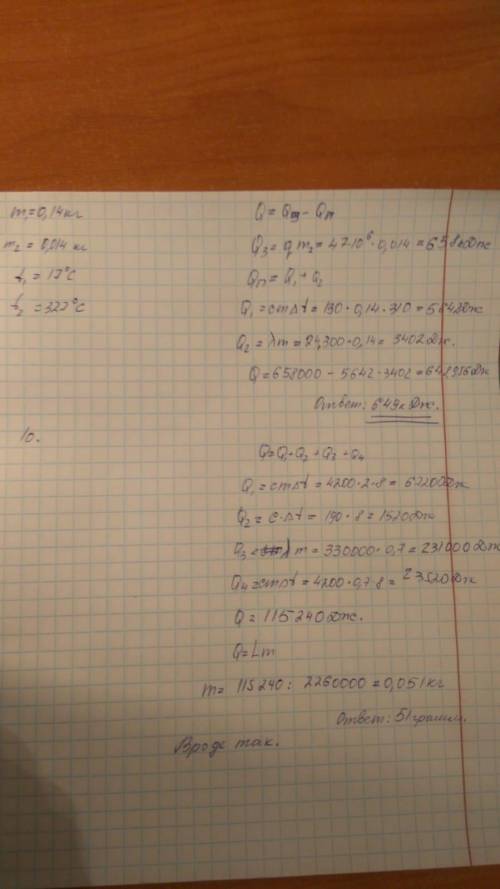 m₁=0,14 кг
Q = Qсг - Qп
m₂ = 0,014 кг
Q₃ = q m₂ = 47·10⁶·0,014 = 658кДж
t₁ = 17°C
Qп = Q₁ + Q₂
t₂ = 327°C
Q₁ = cmΔt = 130·0,14·310 = 5642Дж
Q₂ = λm = 24,300·0,14 = 3402 Дж.
Q = 658000 - 5642 - 3402 = 648956 Дж
Ответ: 649кДж.
10.
Q = Q₁ + Q₂ + Q₃ + Q₄
Q₁ = cmΔt = 4200·2·8 = 67200Дж
Q₂ = c·Δt = 190·8 = 1520Дж
Q₃ = λm = 330000·0,7 = 231000Дж
Q₄ = cmΔt = 4200·0,7·8 = 23520Дж
Q = 115240Дж.
Q = Lm
m = 115240 : 2260000 = 0,051 кг
Ответ: 51 грамм.
Вроде так.